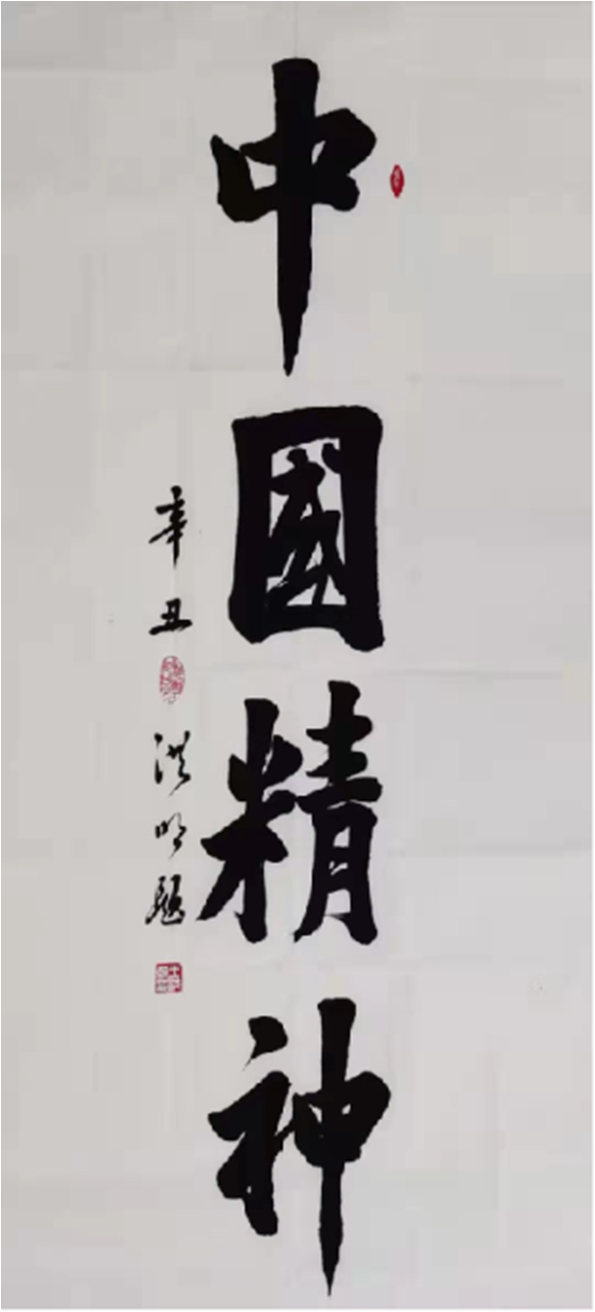 中國精神
辛丑
洪明题